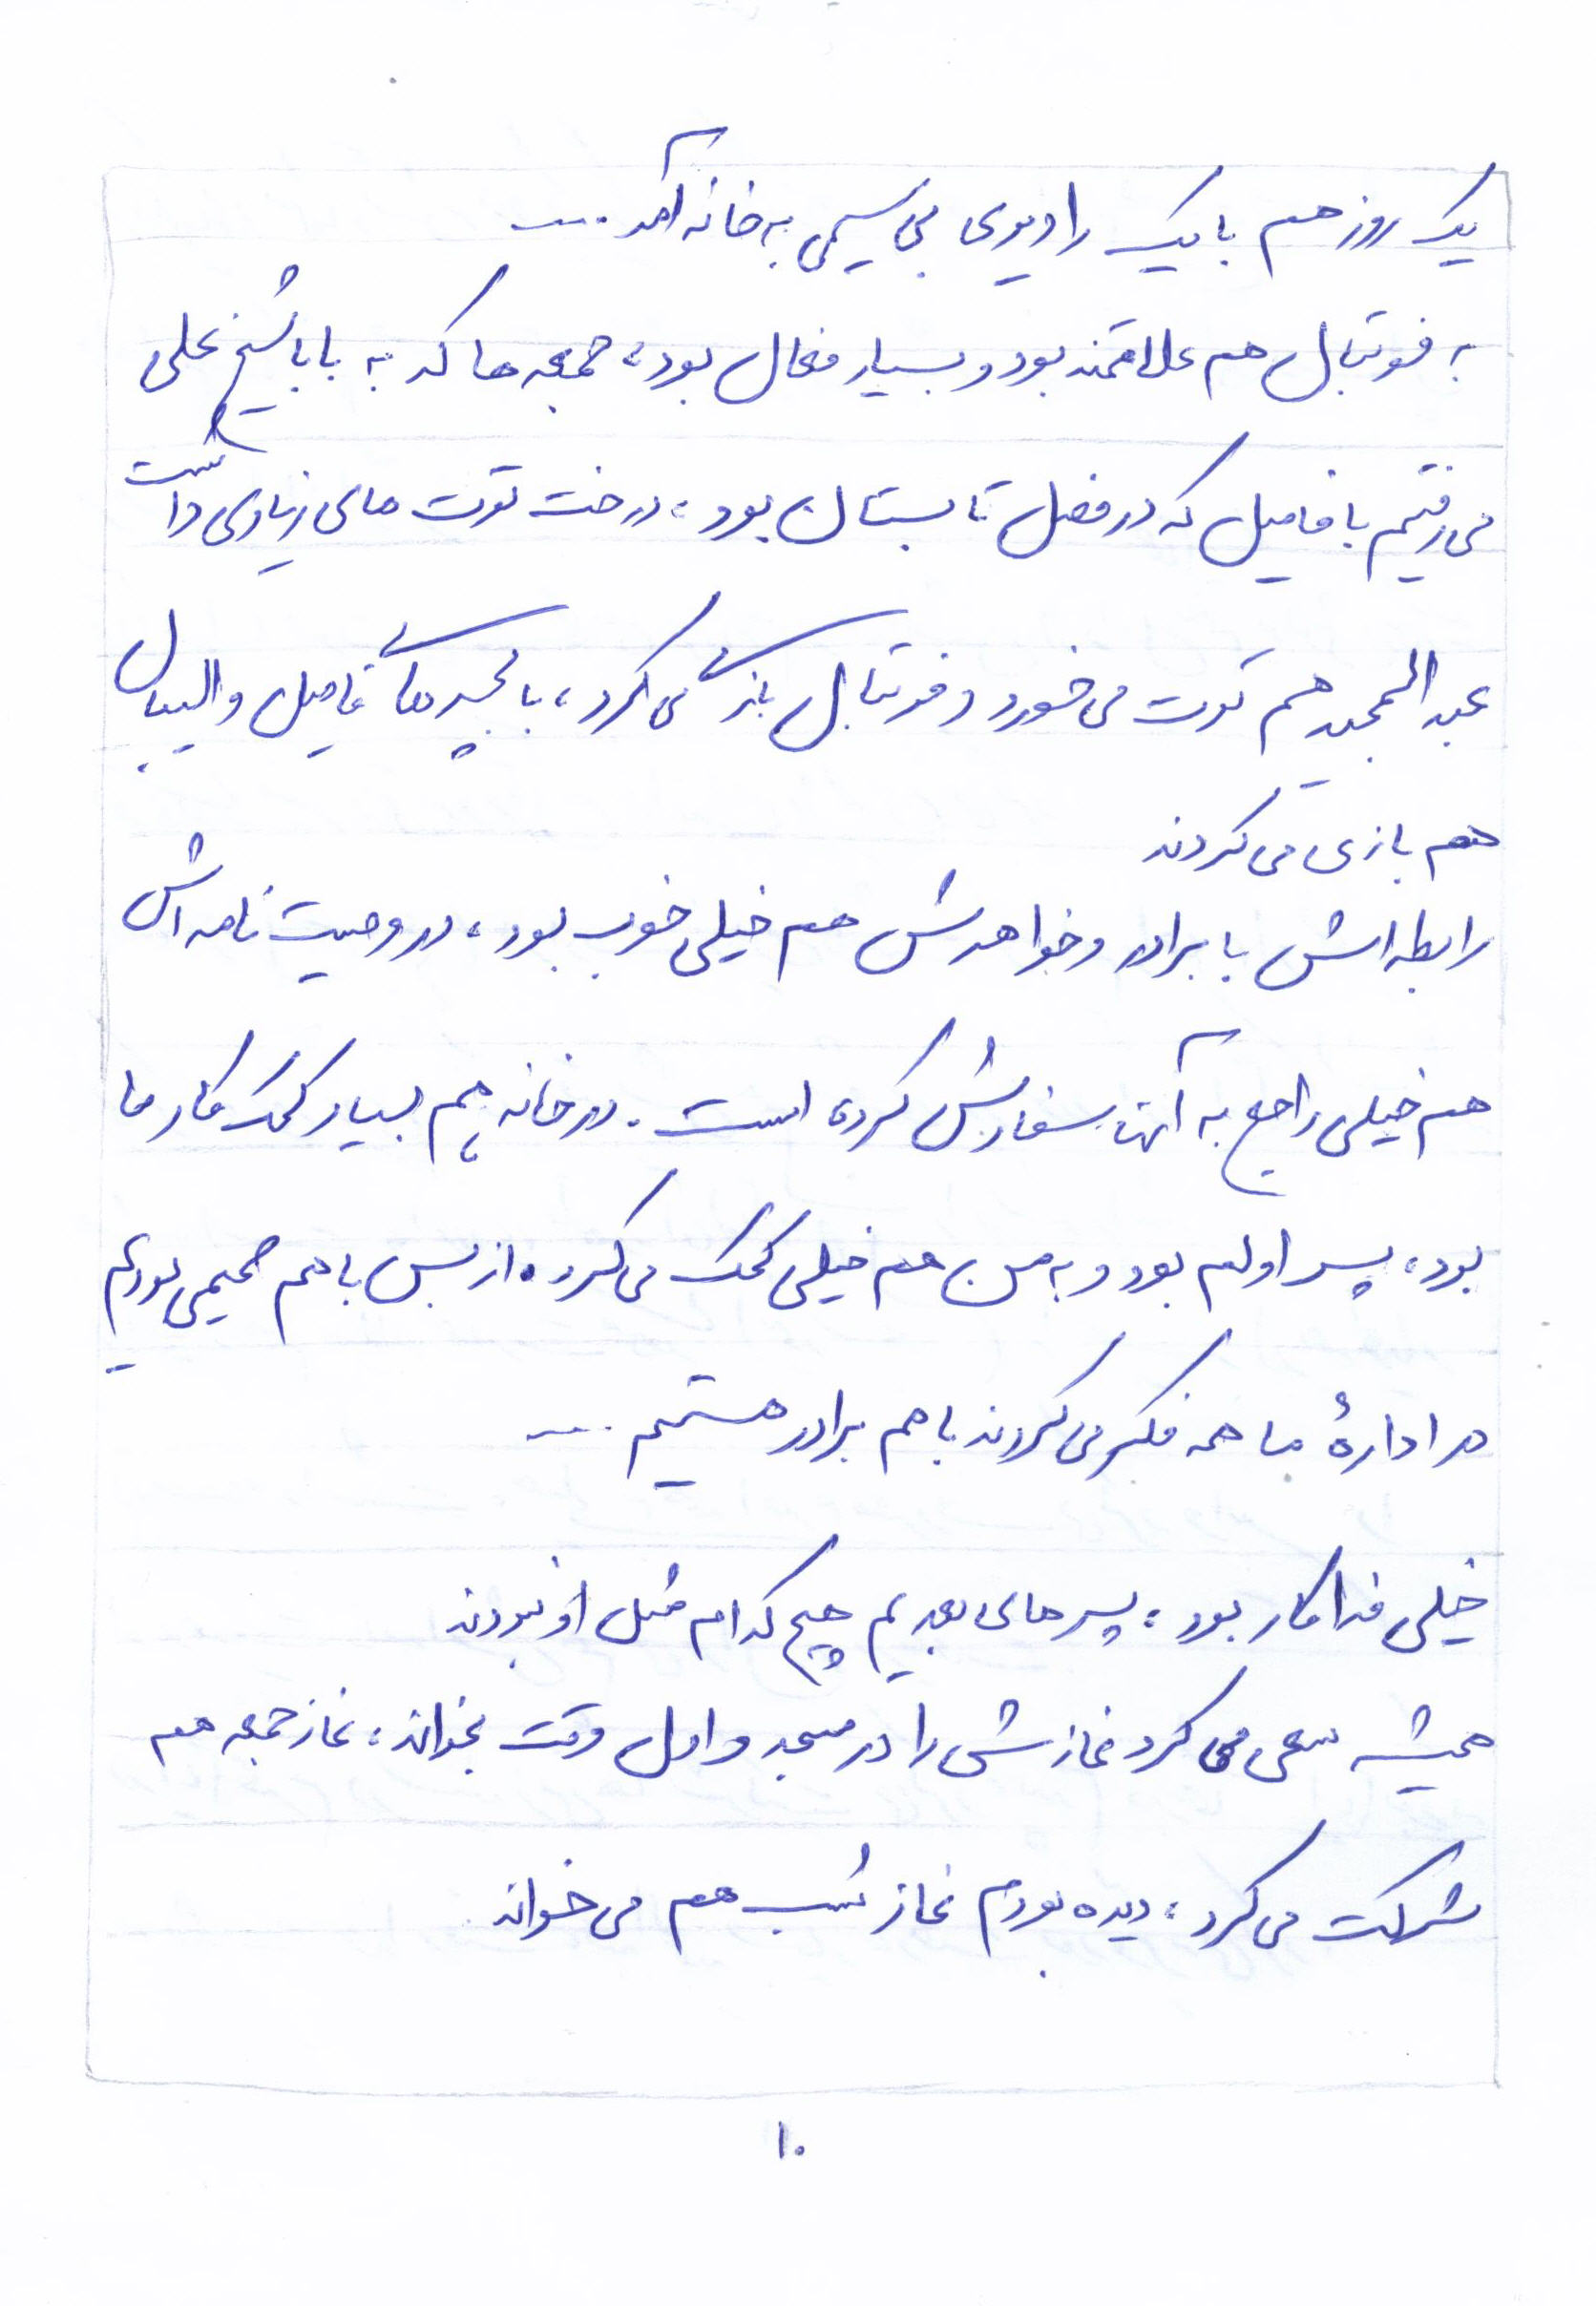 یک روز هم با یک رادیوی بی سیمی به خانه آمد ....
به فوتبال هم علاقمند بود و بسیار فعال بود، جمعه ها که به باباشیخ علی
می رفتیم با فامیل که در فصل تابستان بود، درخت توت های زیادی داشت
عبدالمجید هم توت می خورد و فوتبال بازی می کرد، با بچه های فامیل والیبال
هم بازی می کردند
رابطه اش با برادر و خواهرش هم خیلی خوب بود، در وصیت نامه اش
هم خیلی راجع به آنها سفارش کرده است. در خانه هم بسیار کمک کار ما
بود، پسر اولم بود و به من هم خیلی کمک می کرد. از بس با هم صمیمی بودیم
در ادارهٔ ما همه فکر می کردند با هم برادر هستیم ....
خیلی فداکار بود، پسرهای بعدیم هیچ کدام مثل او نبودند
همیشه سعی می کرد نمازش را در مسجد و اول وقت بخواند، نماز جمعه هم
شرکت می کرد، دیده بودم نماز شب هم می خواند
۱۰